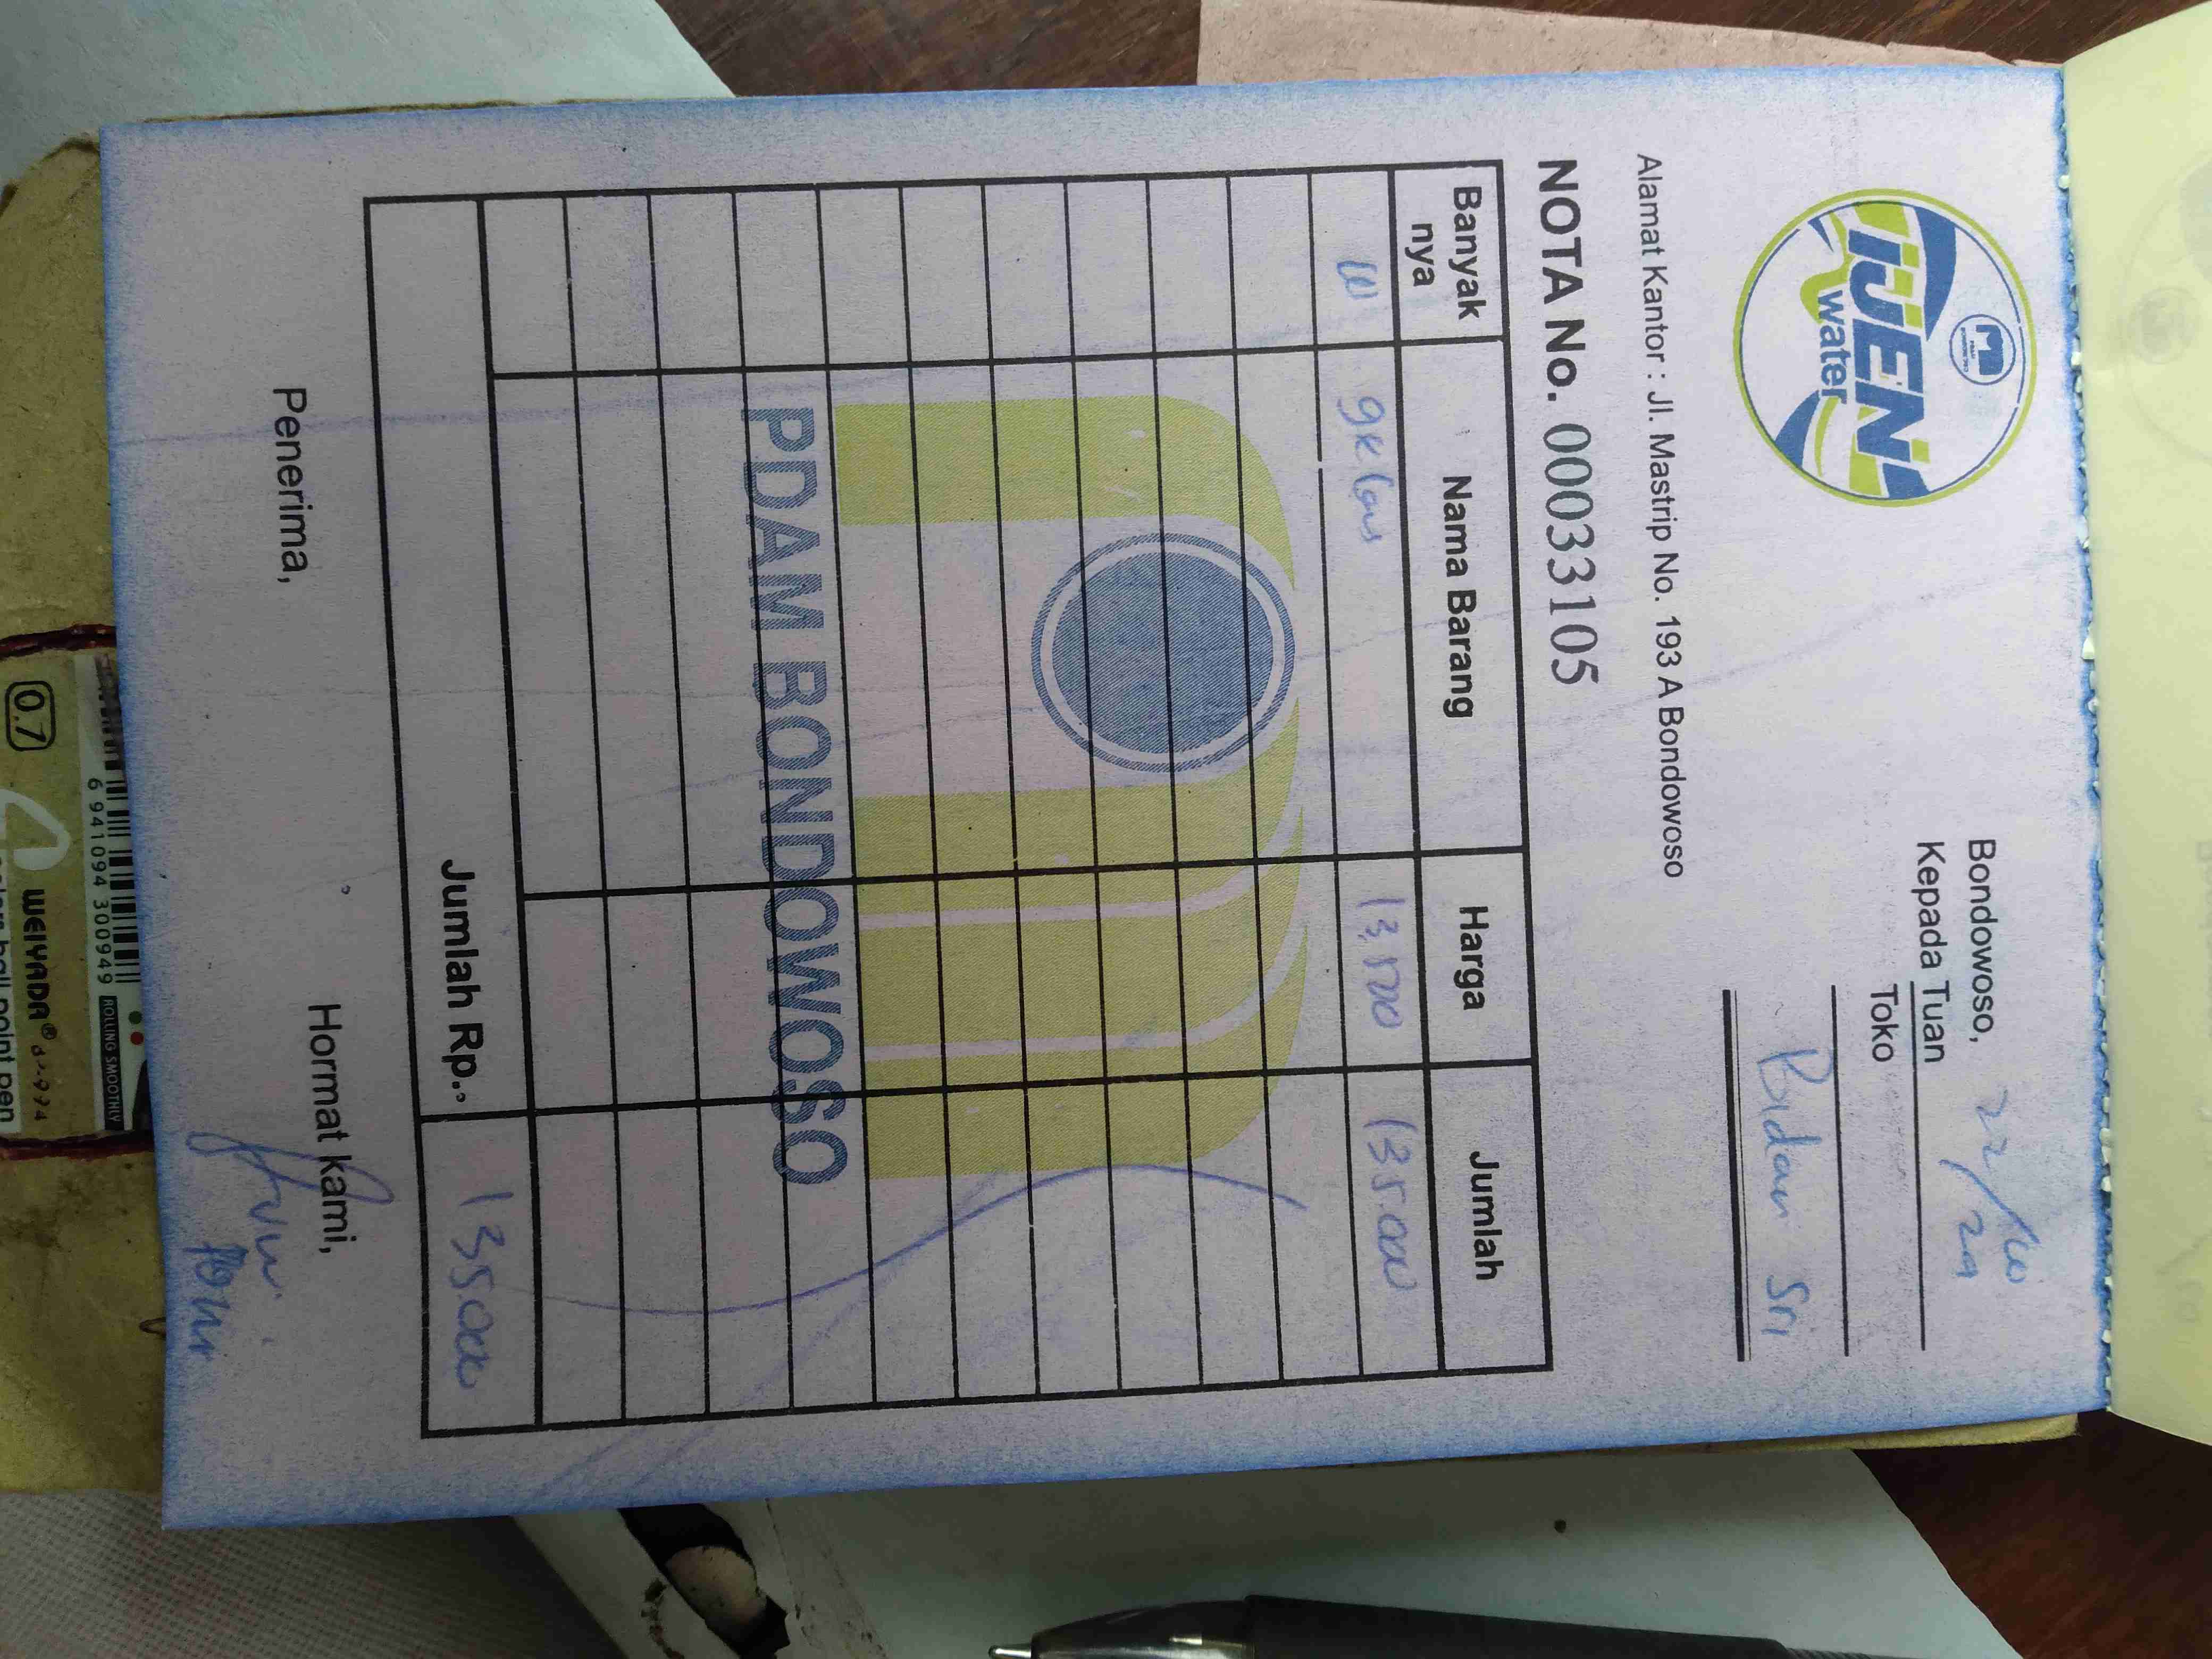 IJEN
water
Bondowoso, 22/10 24
Kepada Tuan
Toko
Bidan Sri
Alamat Kantor : Jl. Mastrip No. 193 A Bondowoso
NOTA No. 00033105
Banyak nya Nama Barang Harga Jumlah
10 gelas 13.500 135.000
PDAM BONDOWOSO
Jumlah Rp.. 135000
Penerima, Hormat kami,
0.7
6 941094 300949
ROLLING SMOOTHLY
WEIYADA®
ball point pen